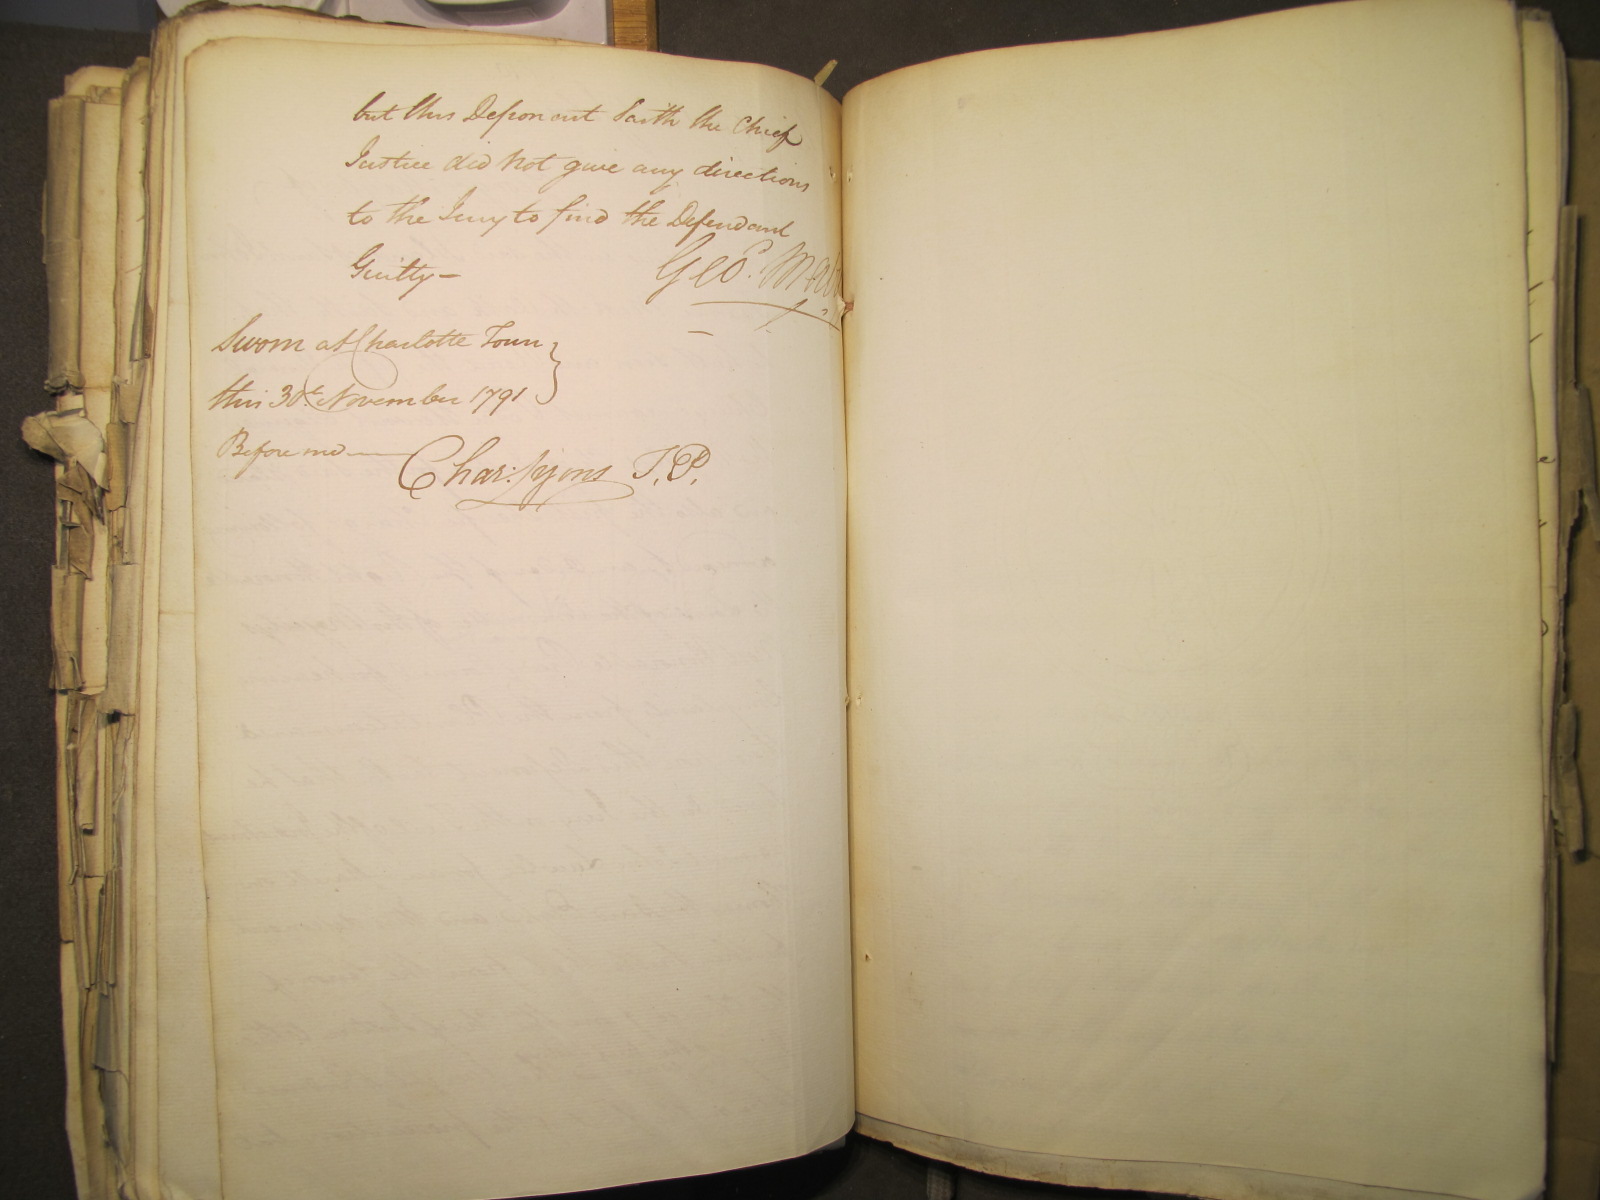 but this Deponent Saith the Chief
Justice did not give any directions
to the Jury to find the Defendant
Guilty—
Geo.
Sworn at Charlotte Town
this 30th November 1791
Before me
Char: Lyons J.P.